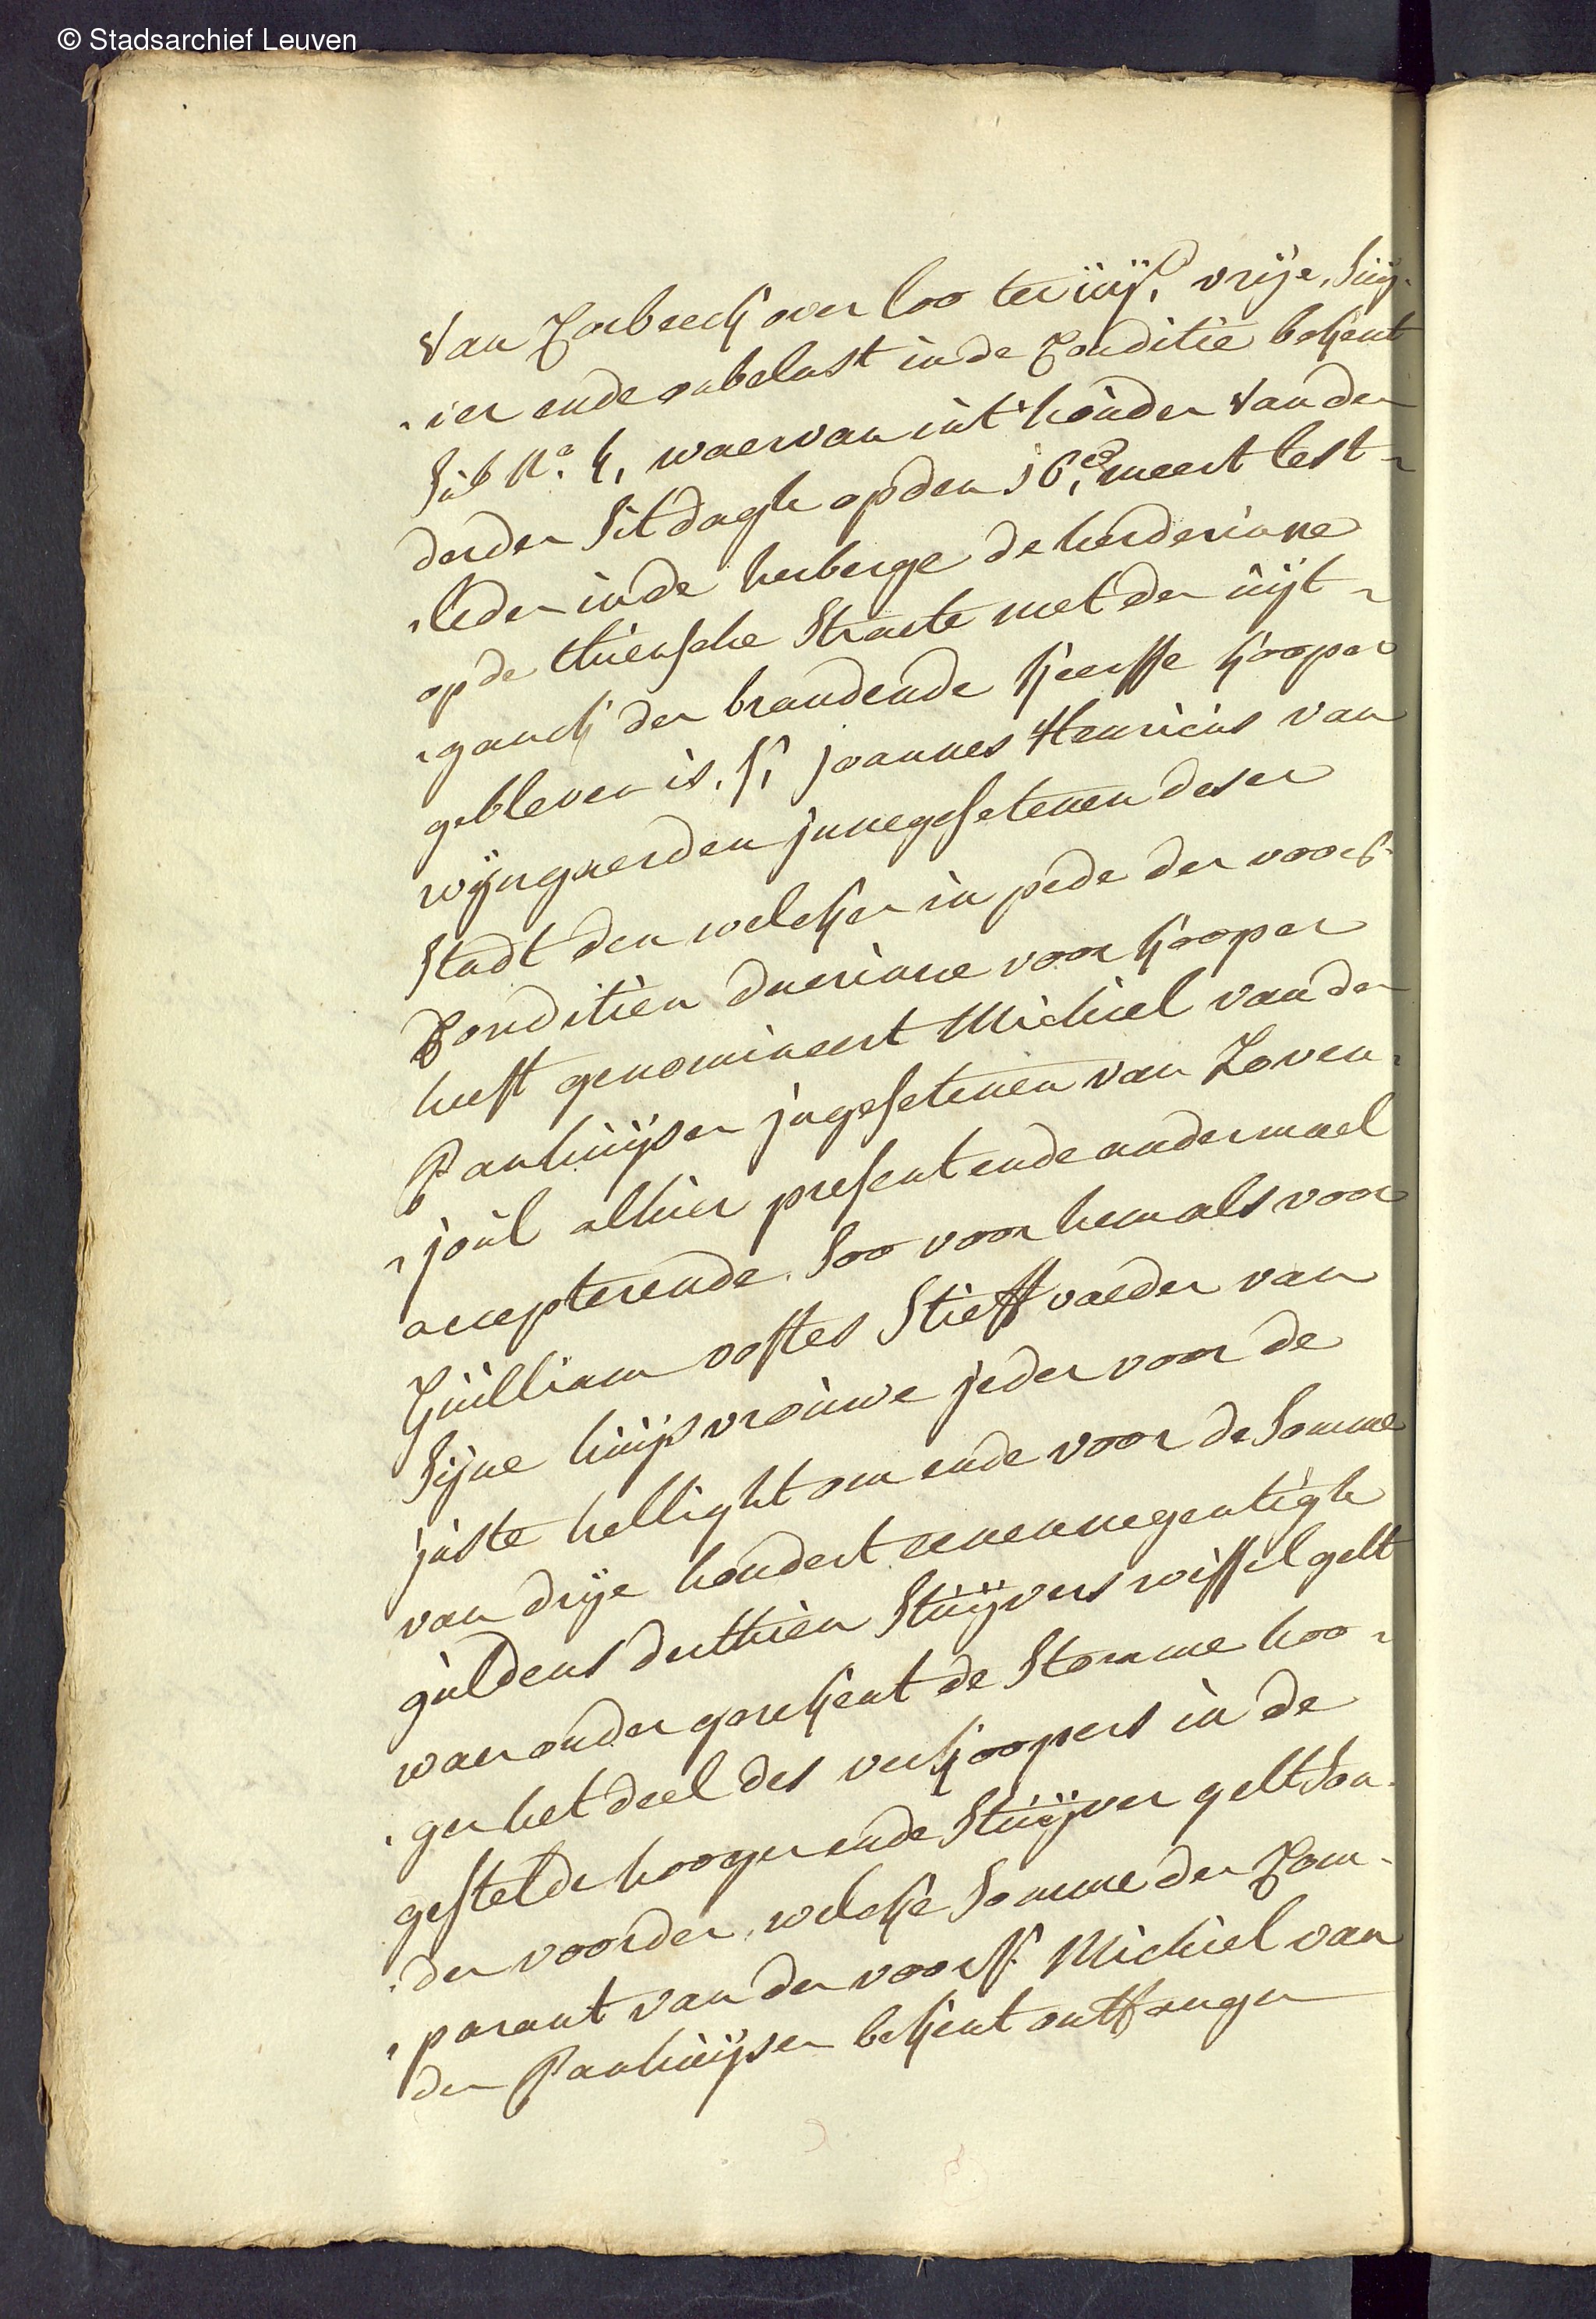 © Stadsarchief Leuven
van Corbeeck over loo ter iiij.e vrije, suij-
-ver ende onbelast inde Conditie bekent
sub N.o 4, waervan int houden vanden
derden sitdagh op den 16.e meert lest-
-leden inde herberge de herderinne
op de thiensche straete met den uijt-
-ganck der brandende keersse kooper
gebleven is, Sr. Joannes Henricus van
wijngaerden innegesetenen deser
stadt den welcken in pede der voors.
Conditien daerinne voor kooper
heeft genomineert Michiel van den
Panhuijsen ingesetenen van Loven-
-joul alhier present ende andermael
accepterende soo voor hem als voor
Guilliam ostes stieffvaeder van
sijne huijsvrouwe jeder voor de
juste hellight om ende voor de somme
van drije hondert eenennegentigh
guldens derthien stuijvers wissel gelt
waeronder gerekent de stomme hoo-
-gen het deel des verkoopers in de
gestelde hoogen ende stuijver gelt son-
-der voorder, welcke somme den Com-
-parant van den voorss. Michiel van
den Panhuijsen bekent ontfangen